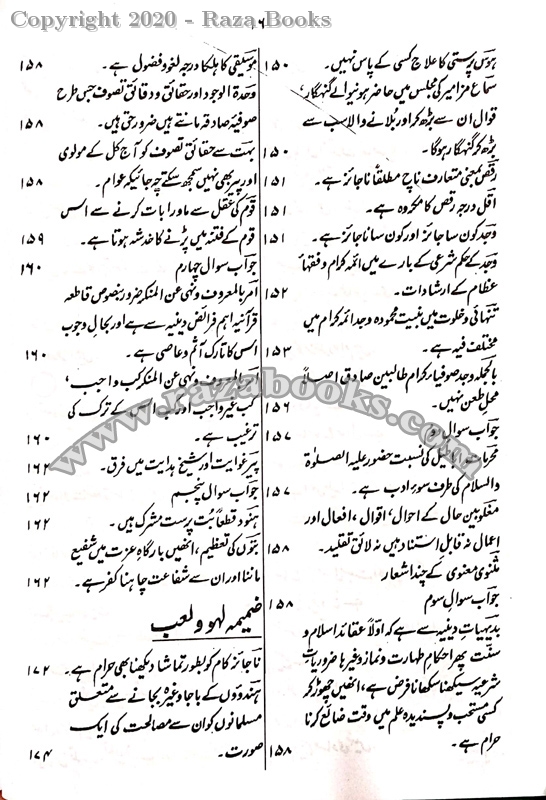 Copyright 2020 - Raza Books
۱۶
ہوس پرستی کا علاج کسی کے پاس نہیں۔ ۱۵۰
سماع مزامیر کی مجلس میں حاضر ہونے والے گنہگار،
قوال ان سے بڑھ کر اور بلانے والا سب سے
بڑھ کر گنہگار ہوگا۔ ۱۵۰
رقص بمعنی متعارف ناچ مطلقًا ناجائز ہے۔ ۱۵۱
اقل درجہ رقص کا مکروہ ہے۔ ۱۵۱
وجد کون سا جائز اور کون سا ناجائز ہے۔ ۱۵۱
وجد کے حکم شرعی کے بارے میں ائمہ کرام و فقہا
عظام کے ارشادات۔ ۱۵۲
تنہائی و خلوت میں بنیت محمودہ وجد ائمہ کرام میں
مختلف فیہ ہے۔ ۱۵۳
بالجملہ وجد صوفیاء کرام طالبین صادق اصلاً
محل طعن نہیں۔ ۱۵۶
جواب سوال دوم ۱۵۷
کی نسبت حضور علیہ الصلوٰۃ
والسلام کی طرف سوءِ ادب ہے۔ ۱۵۷
مغلوبین حال کے احوال، اقوال، افعال اور
اعمال نہ قابل استناد ہیں نہ لائق تقلید۔ ۱۵۸
مثنوی معنوی کے چند اشعار
جواب سوال سوم ۱۵۸
بدیہیات دینیہ سے ہے کہ اولاً عقائد اسلام و
سنت پھر احکام طہارت و نماز وغیرہا ضروریات
شرعیہ سیکھنا سکھانا فرض ہے، انھیں چھوڑ کر
کسی مستحب و پسندیدہ علم میں وقت ضائع کرنا
حرام ہے۔ ۱۵۸
موسیقی کا ہلکا درجہ لغو و فضول ہے۔ ۱۵۸
وحدۃ الوجود اور حقائق و دقائق تصوف جس طرح
صوفیہ صادقہ مانتے ہیں ضرور حق ہیں۔ ۱۵۸
بہت سے حقائق تصوف کو آج کل کے مولوی
اور پیر بھی نہیں سمجھ سکتے چہ جائیکہ عوام۔ ۱۵۸
قوم کی عقل سے ماوراء بات کرنے سے اس
قوم کے فتنہ میں پڑنے کا خدشہ ہوتا ہے۔ ۱۵۹
جواب سوال چہارم ۱۶۰
امر بالمعروف و نہی عن المنکر ضرور بنصوص قاطعہ
قرآنیہ اہم فرائض دینیہ سے ہے اور بحال وجوب
اس کا تارک آثم و عاصی ہے۔ ۱۶۰
امر بالمعروف و نہی عن المنکر کب واجب،
کب غیر واجب اور کب اس کے ترک کی
ترغیب ہے۔ ۱۶۰
پیر غوایت اور شیخ ہدایت میں فرق۔ ۱۶۲
جواب سوال پنجم ۱۶۲
ہنود قطعاً بت پرست مشرک ہیں۔ ۱۶۲
بتوں کی تعظیم، انھیں بارگاہ عزت میں شفیع
ماننا اور ان سے شفاعت چاہنا کفر ہے۔ ۱۶۲
ضمیمہ لہو و لعب
ناجائز کام کو بطور تماشا دیکھنا بھی حرام ہے۔ ۱۷۲
ہندوؤں کے باجا وغیرہ بجانے سے متعلق
مسلمانوں کو ان سے مصالحت کی ایک
صورت۔ ۱۷۴
www.razabooks.com